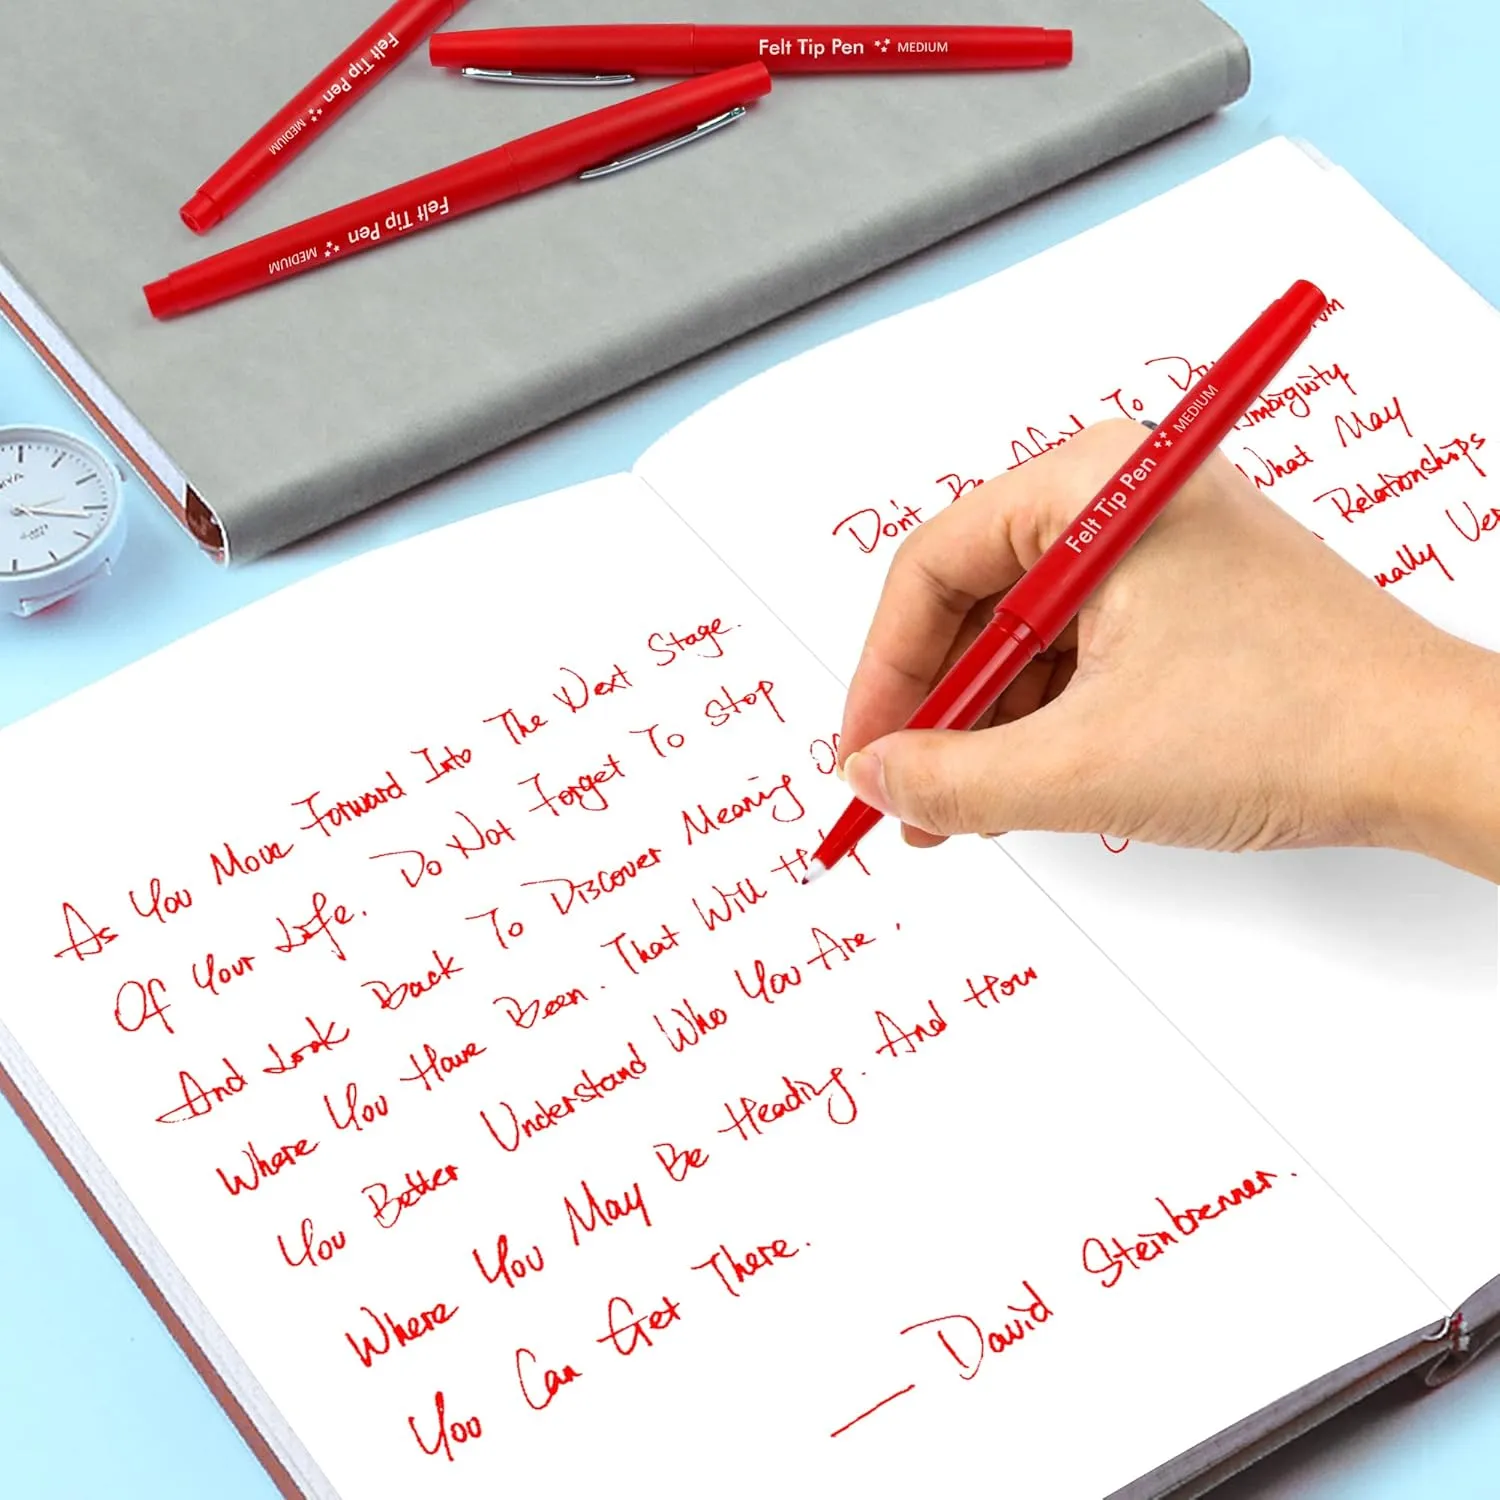 Felt Tip Pen MEDIUM
Felt Tip Pen MEDIUM
Felt Tip Pen MEDIUM
Felt Tip Pen MEDIUM
As You Move Forward Into The Next Stage.
Of Your Life. Do Not Forget To Stop
And Look Back To Discover Meaning
Where You Have Been. That Will Help
You Better Understand Who You Are,
Where You May Be Heading. And How
You Can Get There.
— David Steinbrenner.
Don't Be Afraid To
Ambiguity
What May
Relationships